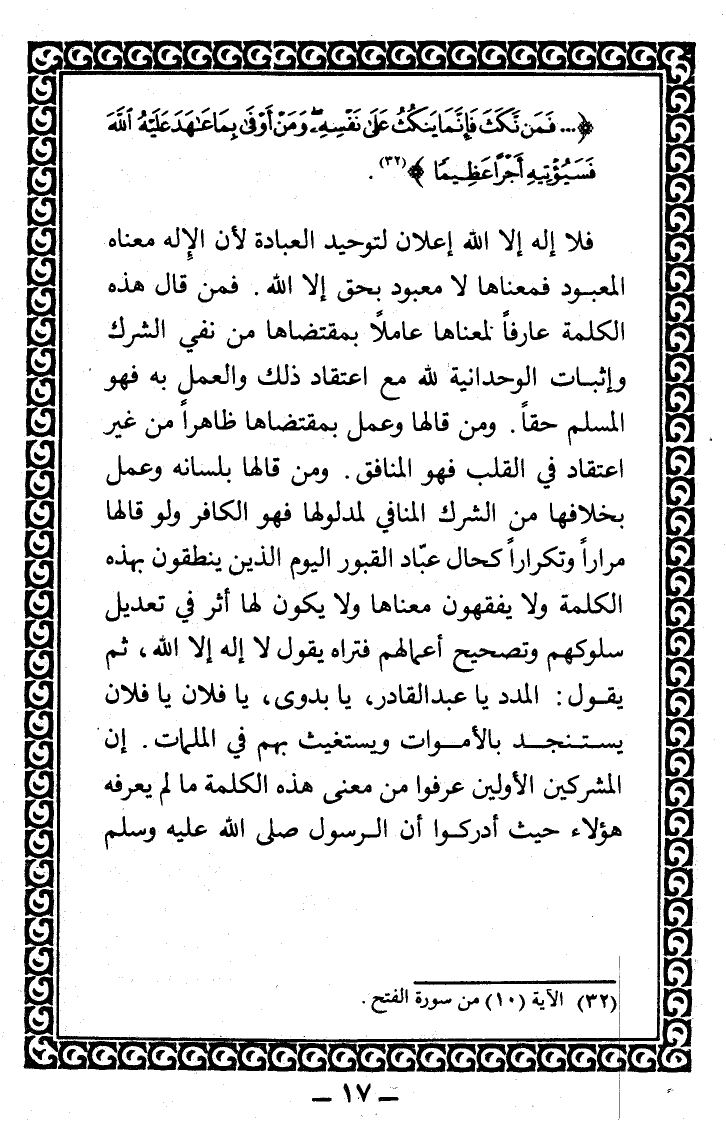 ﴿... فَمَن نَّكَثَ فَإِنَّمَا يَنكُثُ عَلَىٰ نَفْسِهِۦ وَمَنْ أَوْفَىٰ بِمَا عَٰهَدَ عَلَيْهُ ٱللَّهَ
فَسَيُؤْتِيهِ أَجْرًا عَظِيمًا ﴾(٣٢) .
فلا إله إلا الله إعلان لتوحيد العبادة لأن الإِله معناه
المعبـود فمعناها لا معبود بحق إلا الله . فمن قال هذه
الكلمة عارفاً لمعناها عاملاً بمقتضاها من نفي الشرك
وإثبـات الوحدانية لله مع اعتقاد ذلك والعمل به فهو
المسلم حقاً . ومن قالها وعمل بمقتضاها ظاهراً من غير
اعتقاد في القلب فهو المنافق . ومن قالها بلسانه وعمل
بخلافها من الشرك المنافي لمدلولها فهو الكافر ولو قالها
مراراً وتكراراً كحال عبّاد القبور اليوم الذين ينطقون بهذه
الكلمة ولا يفقهون معناها ولا يكون لها أثر في تعديل
سلوكهم وتصحيح أعمالهم فتراه يقول لا إله إلا الله ، ثم
يقـول : المدد يا عبدالقادر ، يا بدوى ، يا فلان يا فلان
يستـنجـد بالأمـوات ويستغيث بهم في الملمات . إن
المشركين الأولين عرفوا من معنى هذه الكلمة ما لم يعرفه
هؤلاء حيث أدركـوا أن الـرسول صلى الله عليه وسلم
(٣٢) الآية (١٠) من سورة الفتح .
ـ ١٧ ـ